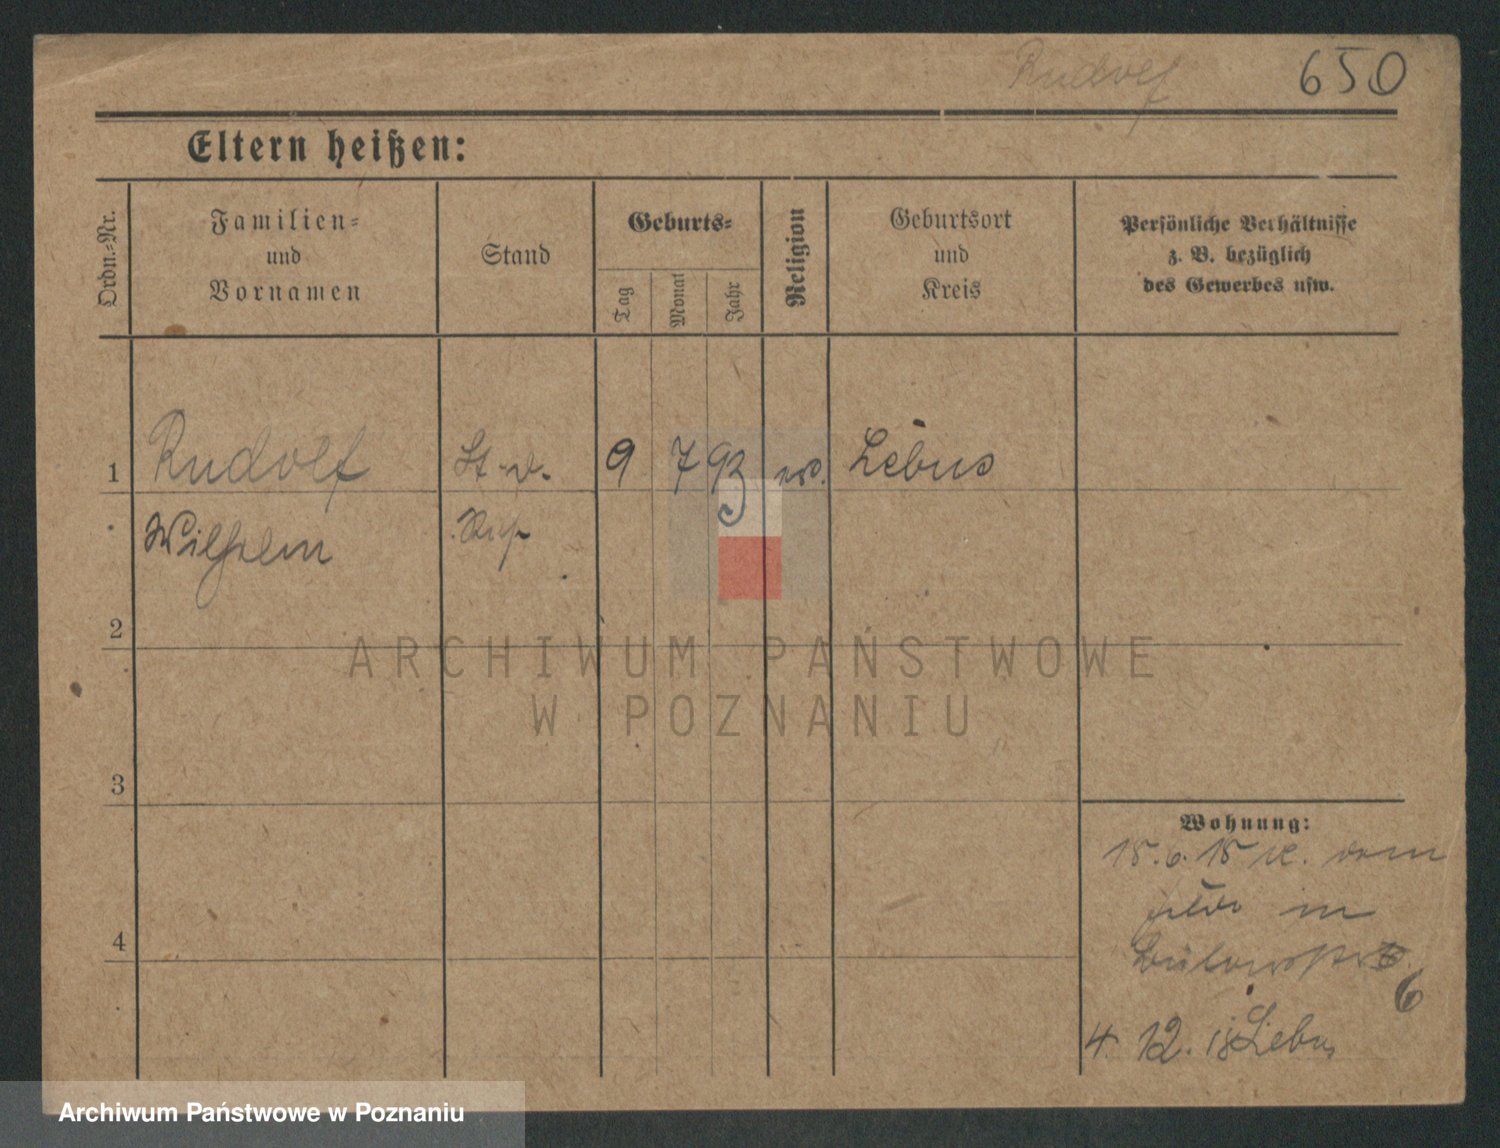 Rudolf 650
Eltern heißen:
Ordn.-Nr.
Familien-
und
Vornamen
Stand
Geburts-
Tag
Monat
Jahr
Religion
Geburtsort
und
Kreis
Persönliche Verhältnisse
z. B. bezüglich
des Gewerbes usw.
1 Rudolf St. v. 9 7 93 Lebus
Wilhelm
2
ARCHIWUM PAŃSTWOWE
W POZNANIU
3
Wohnung:
18. 6. 18 vom
in
4
6
4. 12. 18 Lebus
Archiwum Państwowe w Poznaniu